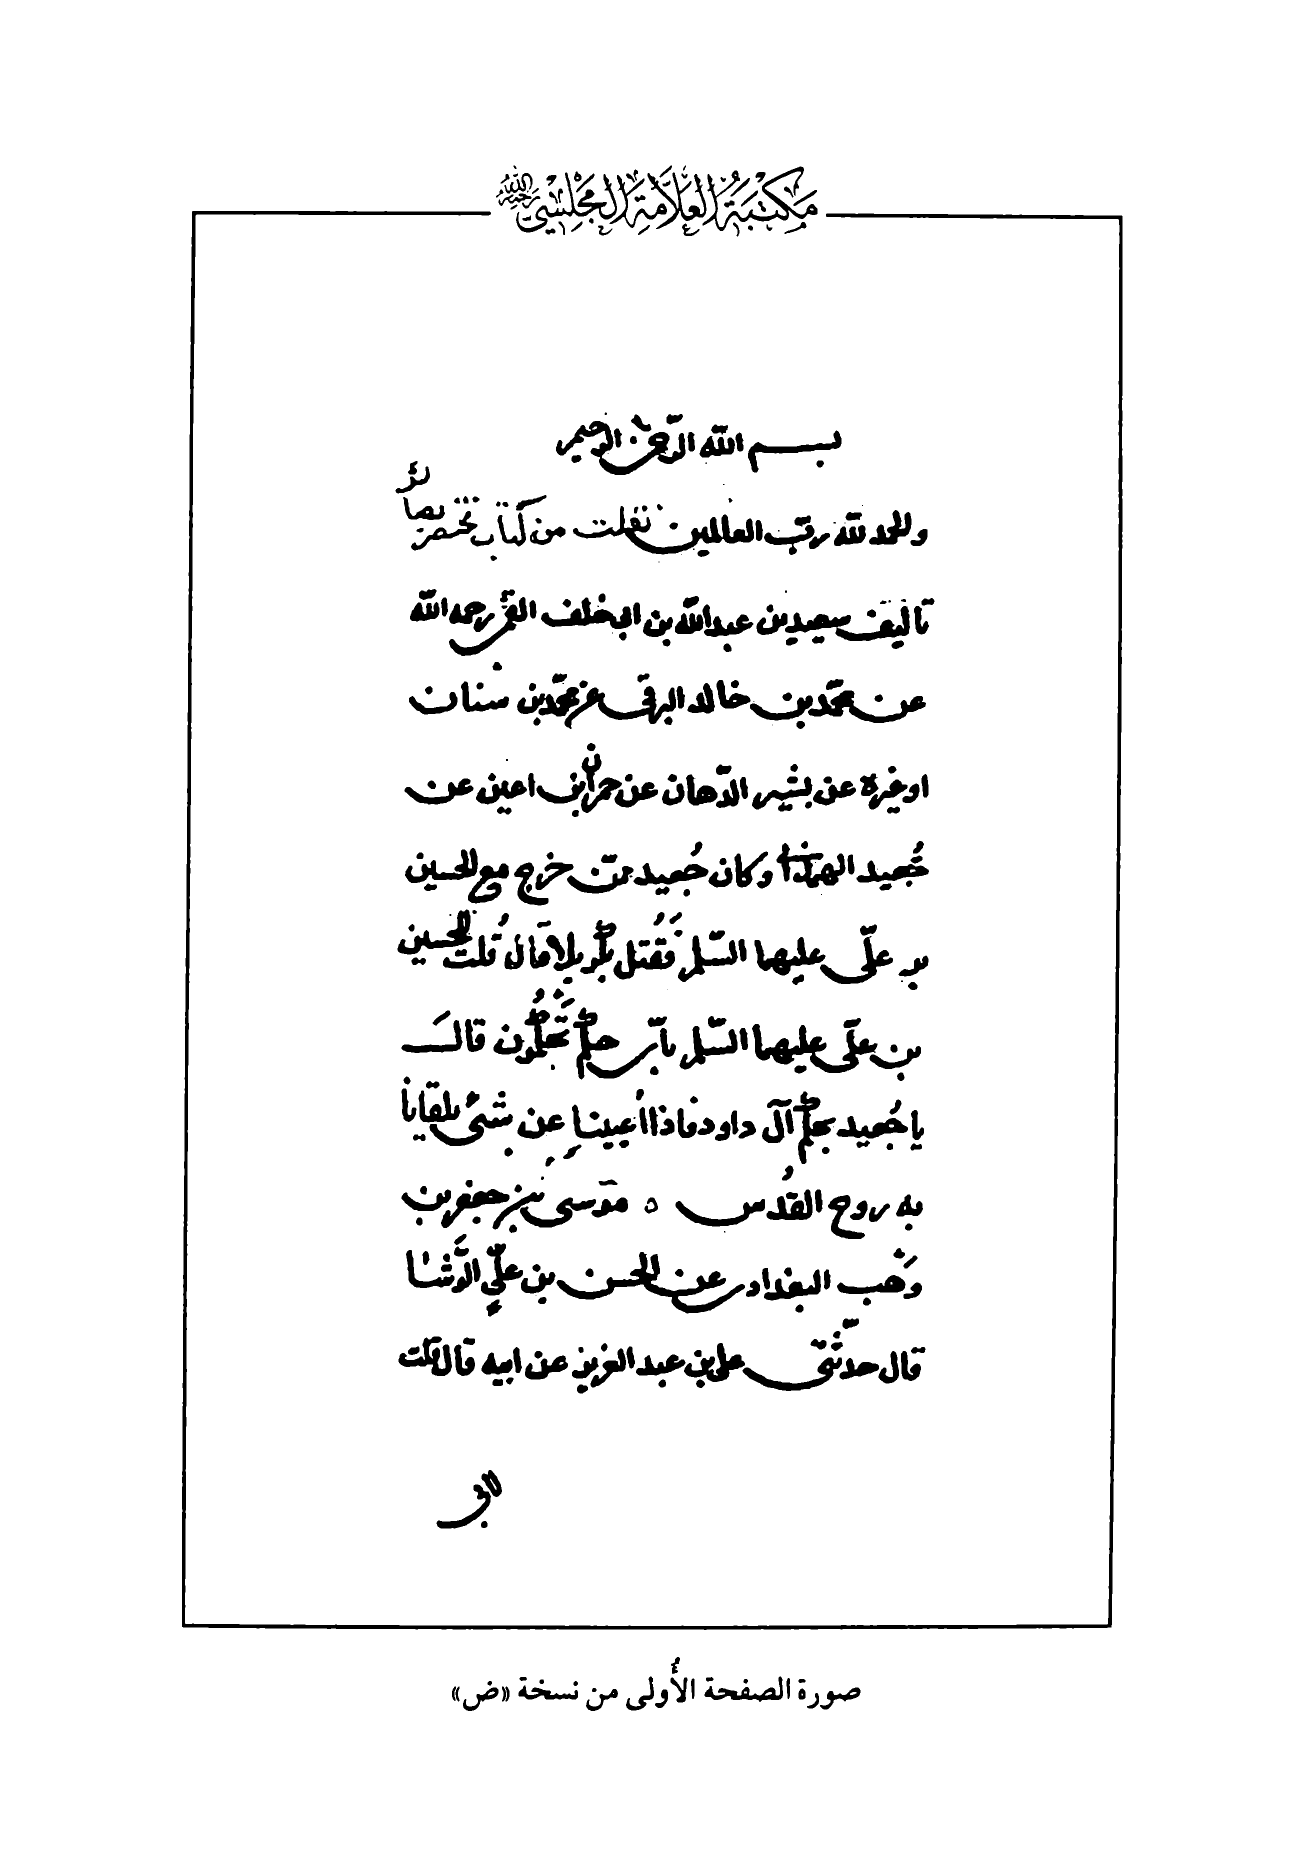 مكتبة العلامة المجلسي رحمه الله
بسم الله الرحمن الرحيم
والحمد لله رب العالمين نقلت من كتاب مختصر بصائر
تاليف سعيد بن عبدالله بن ابي خلف القمّي رحمه الله
عن محمّد بن خالد البرقي عن محمّد بن سنان
او غيره عن بشير الدّهان عن حمران بن اعين عن
جُعيد الهمداني وكان جُعيد ممّن خرج مع الحسين
بن علّي عليهما السّلم فقُتل بكربلا قال قُلت للحسين
بن علّي عليهما السّلم باّي حكم تحكُمُون قالَ
يا جُعيد بحكم آل داود فاذا اُعيينا عن شئ يلقانا
به روح القُدس ٥ موسى بن جعفر بن
وَهَب البغدادي عن الحسن بن عليٍّ الوَشّا
قال حدّثني على بن عبد العزيز عن ابيه قال قلت
لابي
صورة الصفحة الأُولى من نسخة «ض»